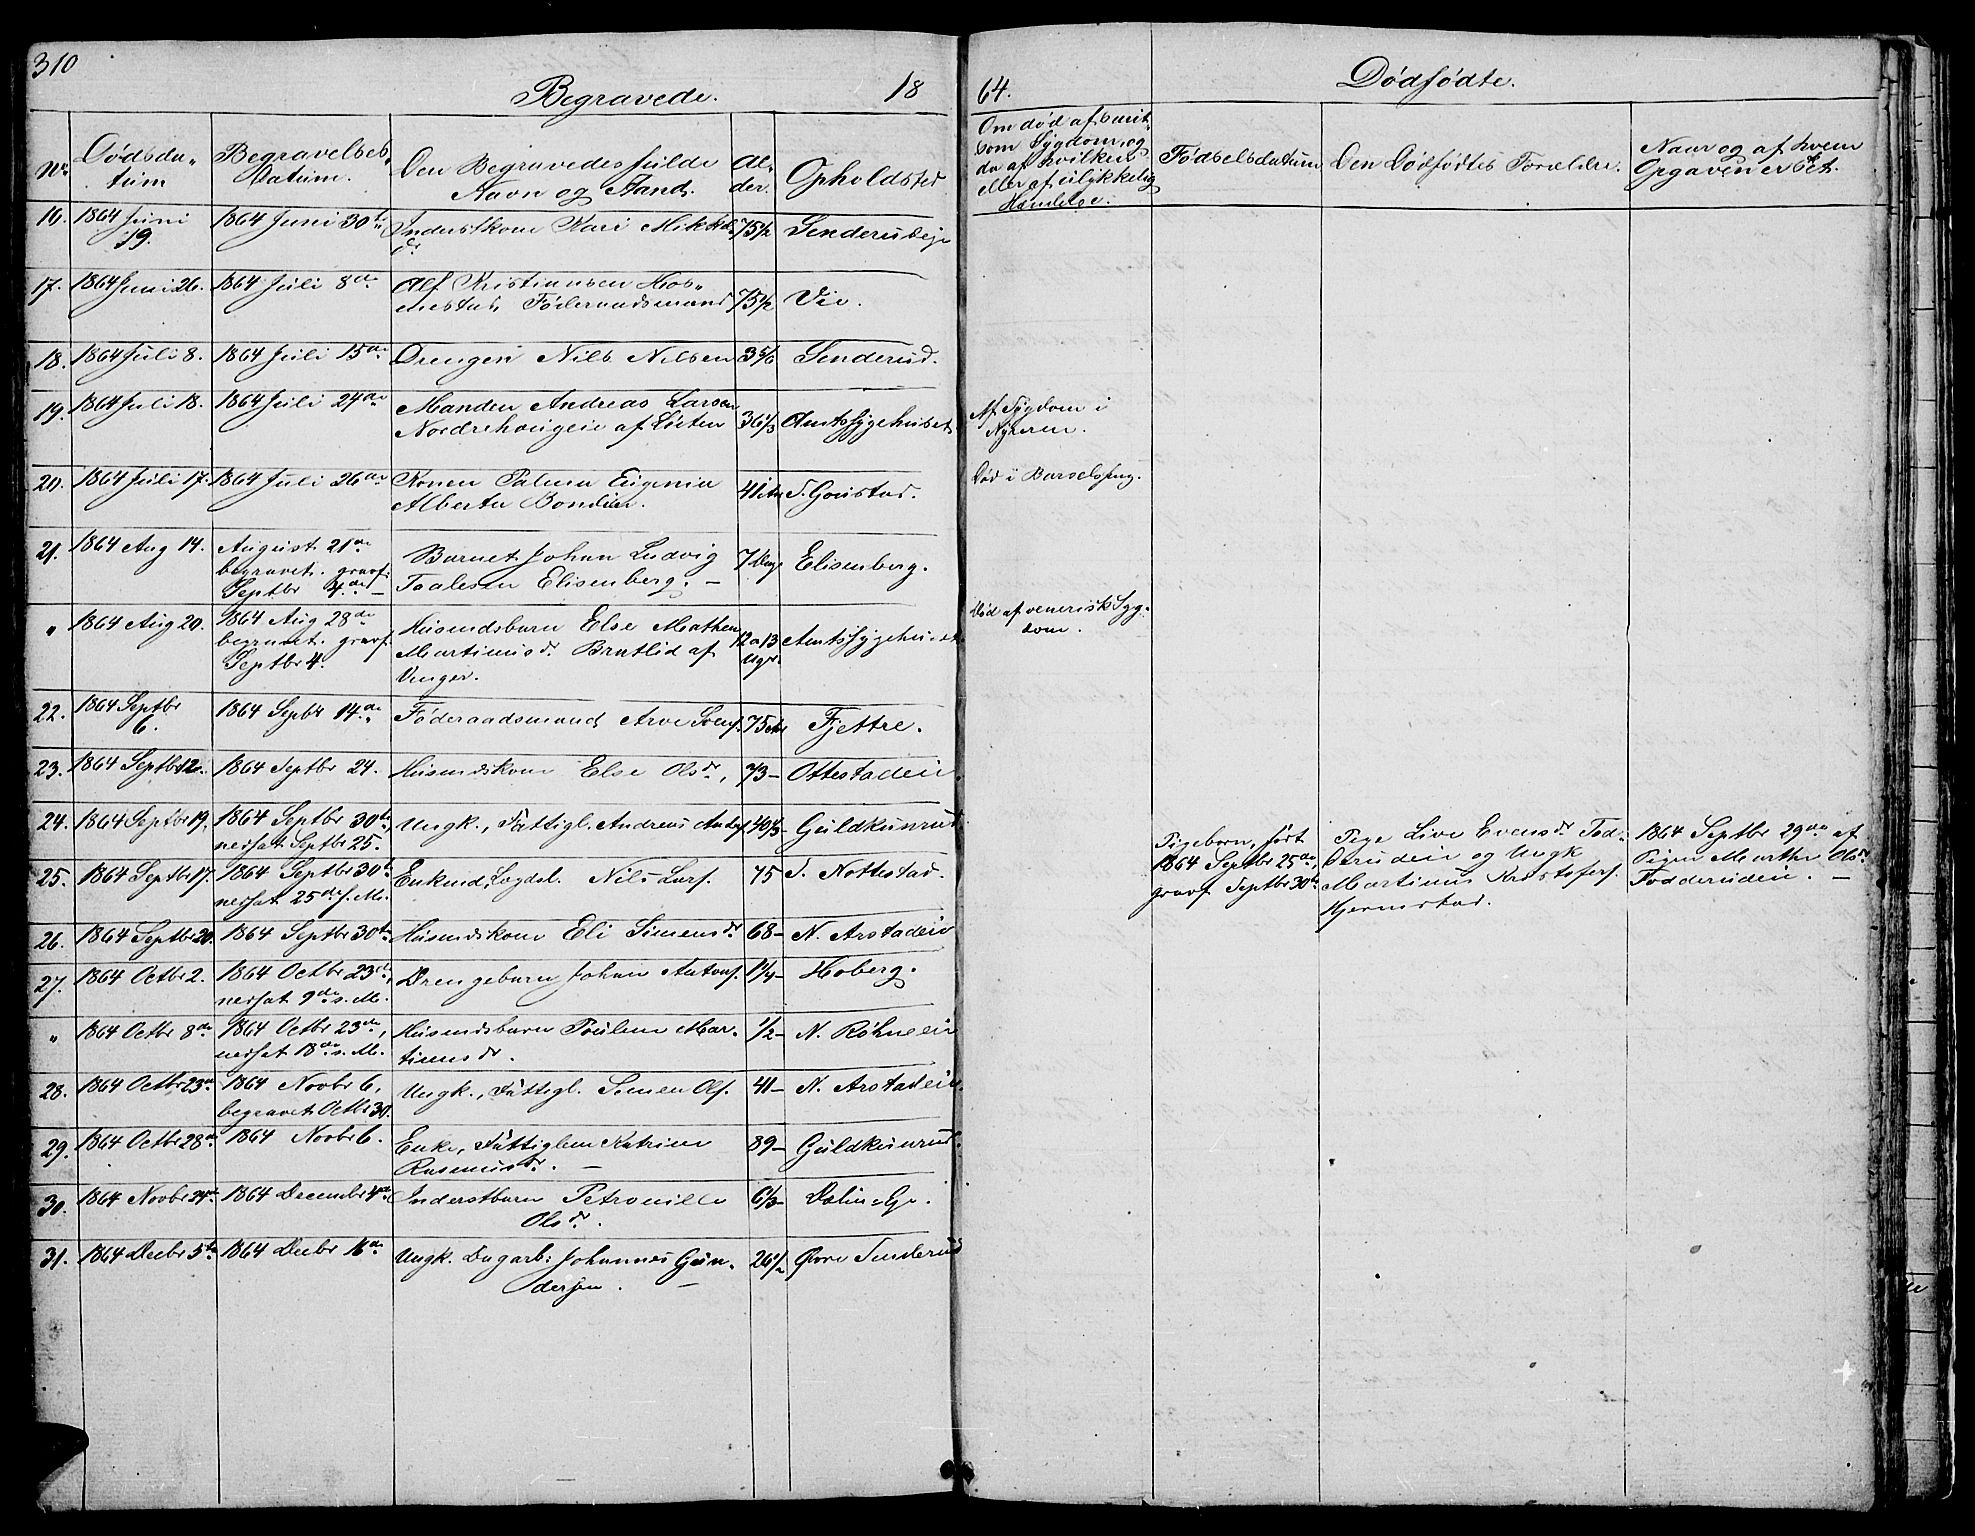 310
Begravede.
18
64.
Dødfødte.
No
Dødsda-
tum
Begravelses
Datum.
Den Begravedes fulde
Navn og Stand.
Al-
der.
Opholdsted
Om død af smit-
som Sygdom, og
da af hvilken
eller af ulykkelig
Hændelse.
Fødselsdatum
Den Dødfødtes Forældre.
Naar og af hvem
Opgaven er skt.
16. 1864 Juni
19.
1864 Juni 30te
Inderstkone Kari Mikkels-
dr
75½
Senderudeje
17. 1864 Juni 26. 1864 Juli 8de
Alf Kristiansen
Føderaadsmand 75½ Vie.
18. 1864 Juli 8. 1864 Juli 15de Drengen Nils Nilsen 3 5/6 Senderud.
19. 1864 Juli 18. 1864 Juli 24de Manden Andreas Larsen
af Løiten 36 1/3 Amtssygehuset
Af Sygdom i
Nyrerne.
20. 1864 Juli 17. 1864 Juli 26de Konen Palma Eugenia
Alberta 41 Gaustad.
Død i Barselseng.
21. 1864 Aug 14. August 21de
begravet. gravf.
Septbr 4de –
Barnet Johan Ludvig
Taalesen Elisenberg. –
7 Dage Elisenberg.
" 1864 Aug 20. 1864 Aug 28de
begravet. gravf
Septbr 4.
Husmdsbarn Else Mathea
Martinusdr. Bratlid af
Vinger.
12 a 13
Uger.
Amtssygehuset
Død af venerisk Syg-
dom.
22. 1864 Septbr
6.
1864 Sepbr 14de Føderaadsmand Arve Svens. 75 Fjettre.
23. 1864 Septbr 12. 1864 Septbr 24. Husmdskone Else Olsdr, 73– Ottestadeie.
24. 1864 Septbr 19. 1864 Septbr 30te,
nedsat Septbr 25.
Ungk., Fattigl. Andreas Anders 40 1/3– Guldkunrud
25. 1864 Septbr 17. 1864 Septbr 30te
nedsat 25de s. M.
Enkmd, Lægdsl. Nils Lars. 75 S. Nottestad.
Pigebarn, født
1864 Septbr 25de,
gravf Septbr 30te
Pige Live Evensdr Tod-
derudeie og Ungk
Martinus Kristofers.
Hjermstad.
1864 Septbr 29de af
Pigen Marthe Olsdr
Todderudeie. –
26. 1864 Septbr 20. 1864 Septbr 30te Husmdskone Eli Simensdr 68– N. Arstadeie
27. 1864 Octbr 2. 1864 Octbr 23de,
nedsat 9de s. M.
Drengebarn Johan Antons. 1¼– Hoberg.
" 1864 Octbr 8de 1864 Octbr 23de,
nedsat 18de s. M.
Husmdsbarn Pauline Mar-
tinusdr.
½– N. Røhneeie
28. 1864 Octbr 23de 1864 Novbr 6,
begravet Octbr 30.
Ungk., Fattigl. Simen Ols. 41– N. Arstadeie.
29. 1864 Octbr 28de 1864 Novbr 6. Enke, Fattiglem Katrine
Rasmusdr. –
89– Guldkunrud.
30. 1864 Novbr 24de 1864 Decembr 4de Inderstbarn Petronille
Olsdr.
6 1/3–
31. 1864 Decbr 5te 1864 Decbr 16de Ungk. Dagarb: Johannes Gun-
dersen. –
26½ Øvre Senderud